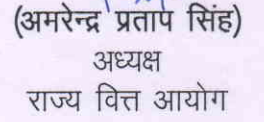 (अमरेन्द्र प्रताप सिंह)
अध्यक्ष
राज्य वित्त आयोग